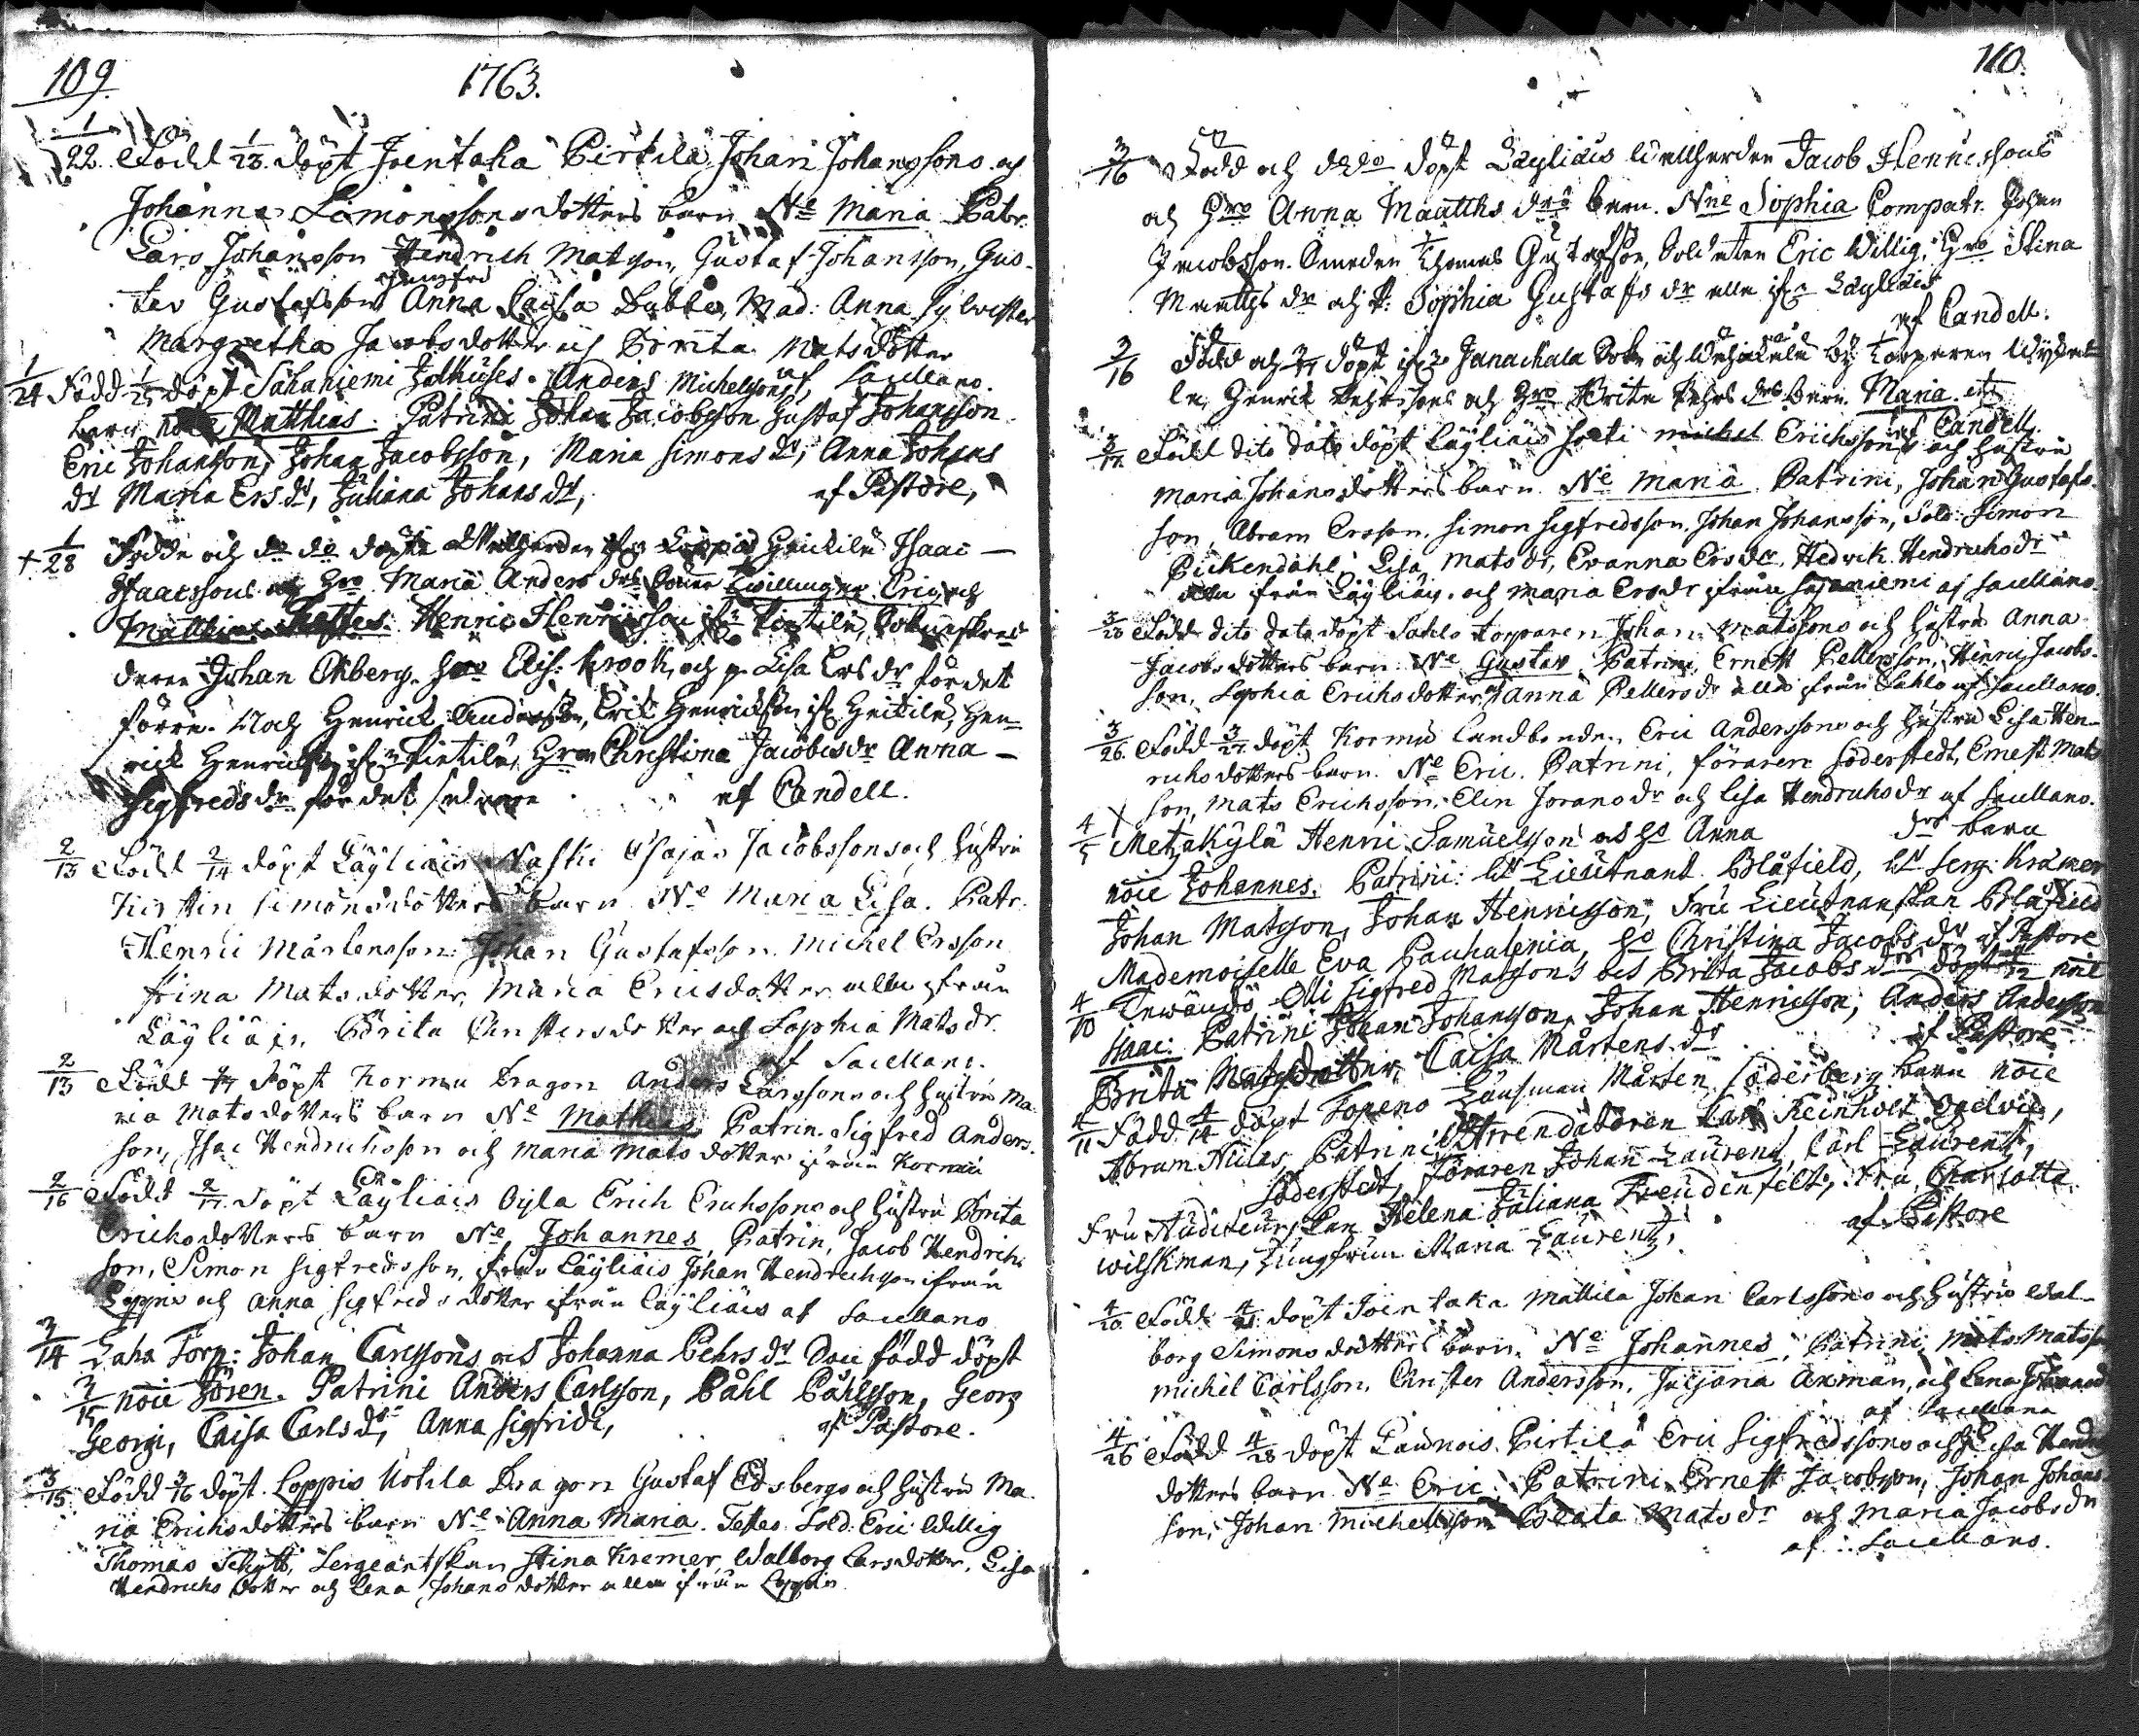 109.
1763.
1/22. Född 1/23. döpt Joentaka Pirkilä Johan Johanssons och
Johanna Simonssons dotters barn Ne Maria Patr.
Lars Johansson Hendrich Matsson, Gustaf Johansson, Gus-
tav Gustafsson Jungfru Anna Caysa Bubbe, Mad: Anna Sylvester
Margretha Jacobsdotter och Brita Matsdotter
af Sacellano.
1/24 Född 1/25 döpt Sahaniemi Anders Michelssons
barn noie Matthias. Patrini Johan Jacobsson Gustaf Johansson
Eric Johansson, Johan Jacobsson, Maria Simons dr, Anna Johans
dr Maria Ers dr, Juliana Johans dr, af Pastore,
+ 1/28 Födde och do do döpte ifr. Loppis Heickilä Isaac
Isaacssons och Hro Maria Anders drs Tvillingar Eric och
Matthias Testes. Henric Henricsson ifr.
Johan Ekberg. Hro Elis. Krook, och p. Lisa Ers dr för det
förra. Och Henrick Andersson, Eric Henricksson ifr Heikilä, Hen-
rick Henricksson ifrn Pietilä, Hro Christina Jacobsdr Anna
Sigfreds dr för det sednare af Candell.
2/13 Född 2/14 döpt Läyliäis Naski Esajas Jacobssons och hustru
Kirstin Simonsdotters barn Ne Maria Lisa. Patr.
Henric Mårtensson. Johan Gustafsson Michel Ersson
Stina Matsdotter, Maria Ericsdotter alla ifrån
Läyliäis, Brita Christersdotter och Sophia Matsdr.
af Sacellano.
2/13 Född döpt Kormu Dragon Anders Larssons och hustru Ma-
ria Matsdotters barn Ne Mathias Patrin. Sigfred Anders-
son, Isac Hendrichsson och Maria Matsdotter ifrån Kormu
2/16 Född 2/17 döpt Läyliäis Oyla Erich Erichssons och hustru Brita
Erichsdotters barn Ne Johannes Patrin, Jacob Hendrich-
son, Simon Sigfredsson, från Läyliäis Johan Hendrichsson ifrån
Loppis och Anna Sigfredsdotter ifrån Läyliäis af Sacellano
3/14 Laha Torp: Johan Carlssons och Johanna Pehrs dr Son född döpt
3/15 noie Jören. Patrini Anders Carlsson, Påhl Påhlsson, Georg
Georgi, Caisa Carls dr, Anna Sigfridi, af Pastore.
3/15 Född 3/16 döpt. Loppis Uotila Dragon Gustaf Edsbergs och hustru Ma-
ria Erichsdotters barn Ne Anna Maria. Testes. Sold. Eric Willig
Thomas Schytt, Sergeantskan Stina Kremer, Walborg Larsdotter, Lisa
Hendrichs dotter och Lena Johansdotter alla ifrån Loppis
110.
3/16 Född och dodo döpt Läyliäis Jacob Henricssons
och Hro Anna Matths drs barn. Nne Sophia Compatr. Johan
Jacobsson. Smeden Thomas Gustafson, Soldaten Eric Willig, Hro Stina
Matths dr och P. Sophia Gustafs dr alla ifrn Läyliäis
af Candell.
3/16 Född och 3/17 döpt ifrn Janackala Sokn och by torparen
Henrik och Hro Brita Pehrs drs barn. Maria. etc
af Candell.
3/17. Född dito dato döpt Läyliäis Soeti Michel Erichssons och hustru
Maria Johansdotters barn Ne Maria. Patrini, Johan Gustafs-
son, Abram Ersson, Simon Sigfredsson, Johan Johansson, Sold: Simon
Pickendahl. Lisa Mats dr, Evanna Ers dr, Hedvik Hendrichsdr
alla ifrån Läyliäis. och Maria Ersdr ifrån Sajaniemi af Sacellano.
3/20 Född dito dato döpt Sahlo torparen Johan Matssons och hustru Anna
Jacobs dotters barn Ne Gustav. Patrini, Ernst Pettersson, Henric Jacobs-
son, Sophia Erichsdotter och Anna Petters dr alla ifrån Sahlo af Sacellano.
3/26. Född 3/27. döpt Kormu Landbonden Eric Anderssons och hustru Lisa Hen-
richsdotters barn. Ne Eric. Patrini, föraren Söderstedt, Ernst Mats-
son, Mats Erichsson, Elin Jorans dr och Lisa Hendrichs dr af Sacellano.
4/5 X Metzäkylä Henric Samuelsson och Hs Anna drs barn
noie Johannes. Patrini: Hr Lieutnant Blåfield, Hr Serg: Kramer
Johan Matsson, Johan Henricsson, Fru Lieutnantskan Blåfield
Mademoiselle Eva Pauhalenia, Hs Christina Jacobs dr af Pastore
4/10 Terwändö Olli Sigfred Matssons och Brita Jacobs drs döpt 4/12 noie
Isaac. Patrini Johan Johansson, Johan Henricsson, Anders Andersson
Brita Matsdotter, Caisa Mårtens dr af Pastore
4/11 Född 4/14 döpt Topeno Länsman Mårten Söderberg barn noie
Abram Niclas, Patrini Arrendatoren Carl Reinholt Ogelvie,
Söderstedt, Föraren Johan Laurentz, Carl Laurentz,
Fru Auditeurskan Helena Juliana Freudenfelt, Fru Charlotta
Wilskman, Jungfrun Maria Laurentz, af Pastore
4/20 Född 4/21 döpt Joentaka Mattila Johan Carlssons och hustru Wal-
borg Simons dotters barn. Ne Johannes, Patrini, Mats Matsson
Michel Carlsson, Christer Andersson, Juljana Axman, och Lena Johansdr
af Sacellano
4/26 Född 4/28 döpt Launois Pirtilä Eric Sigfredssons och h. Lisa Hendrichs
dotters barn Ne Eric. Patrini Ernst Jacobsson, Johan Johans-
son, Johan Michellsson Beata Matsdr och Maria Jacobsdr
af Sacellano.